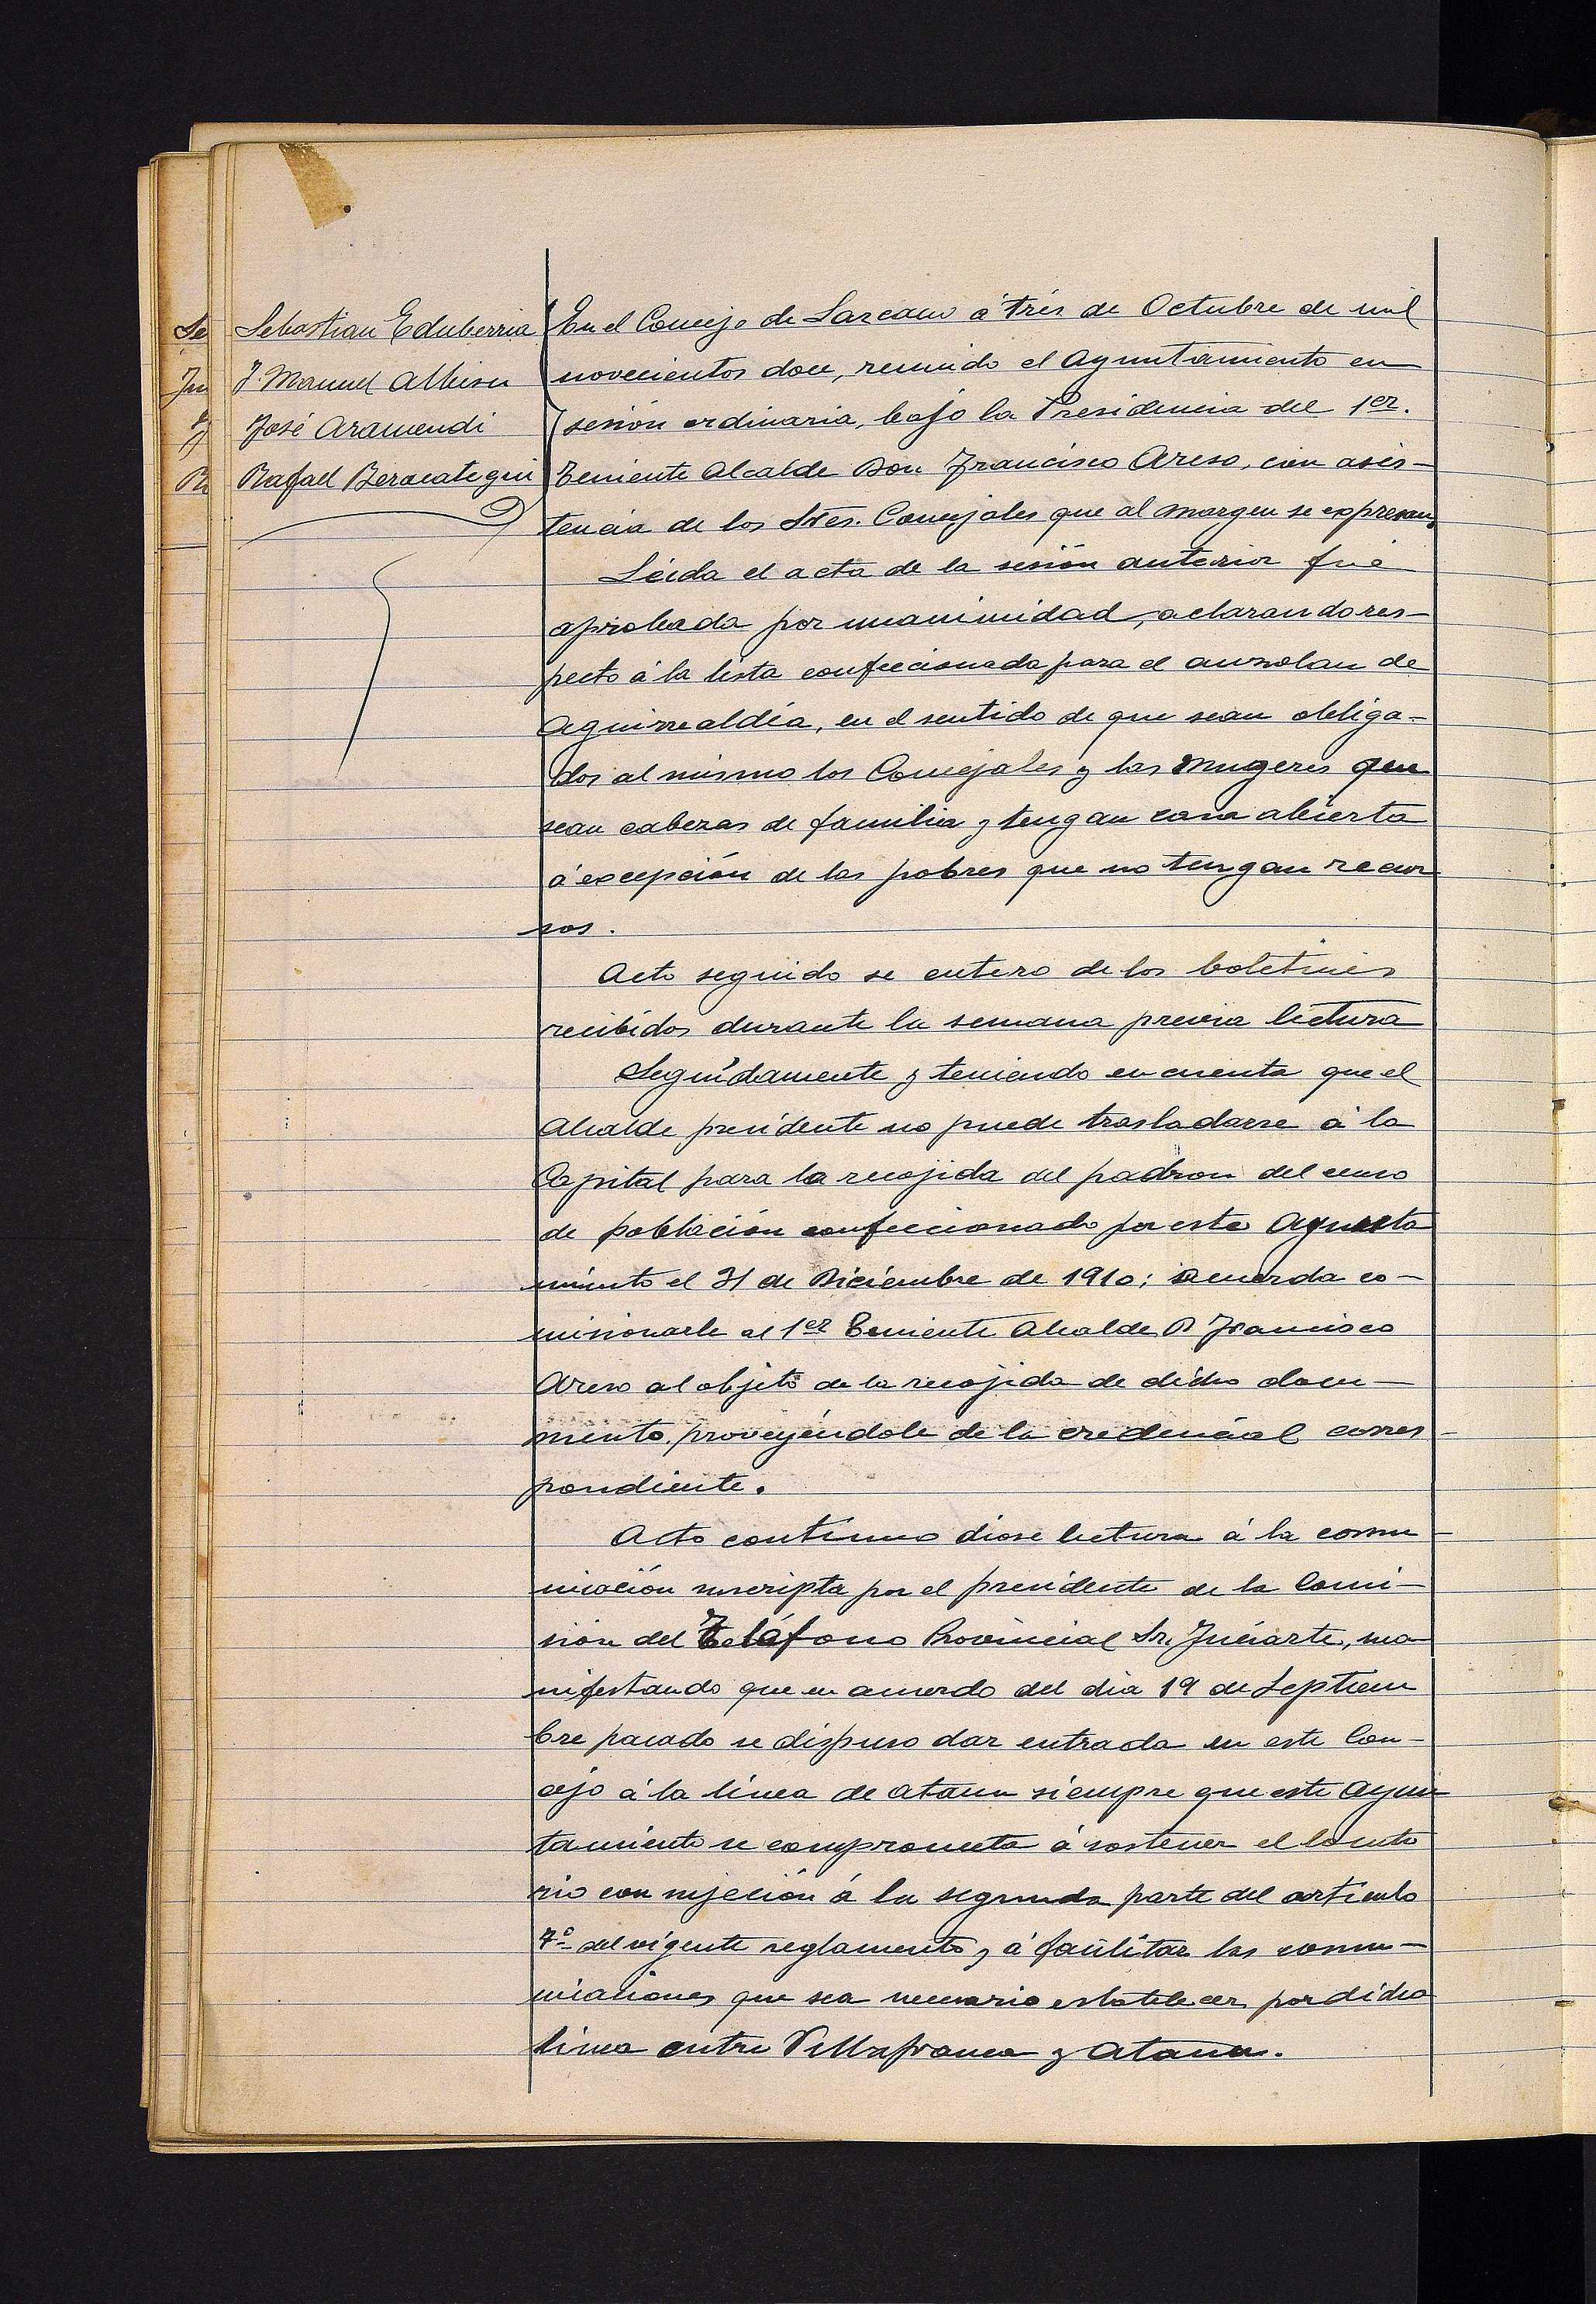 Sebastian Eduberria
J. Manuel Albisu
José Aramendi
Rafael Beracategui
En el Concejo de Lazcano á tres de Octubre de mil
novecientos doce, reunido el Ayuntamiento en
sesión ordinaria, bajo la Presidencia del 1er.
Teniente Alcalde Don Francisco Areso, con asis-
tencia de los Sres. Concejales que al margen se expresan,
Léida el acta de la sesión anterior fué
aprobada por unanimidad, aclarando res-
pecto á la lista confeccionada para el auzolan de
Aguirrealdia, en el sentido de que sean obliga-
dos al mismo los Concejales y las Mugeres que
sean cabezas de familia y tengan casa abierta
á excepción de los pobres que no tengan recur
sos.
Acto seguido se entero de los boletines
recibidos durante la semana previa lectura
Seguidamente y teniendo en cuenta que el
Alcalde presidente no puede trasladarse á la
Capital para la recojida del padron del censo
de población confeccionado por este Ayunta
miento el 31 de Diciembre de 1910; acuerda co-
misionarle al 1er Teniente Alcalde D Francisco
Areso al objeto de la recojida de dicho docu-
mento, proveyéndole de la credencial corres-
pondiente.
Acto continuo diose lectura á la comu-
nicación suscripta por el presidente de la Comi-
sión del Teléfono Provincial Sr. Juciarte, ma
nifestando que en acuerdo del dia 19 de Septiem
bre pasado se dispuso dar entrada en este Con-
cejo á la línea de Ataun siempre que este Ayun
tamiento se comprometa á sostener el locuto
rio con sujeción á la segunda parte del artículo
7º del vigente reglamento y á facilitar las comu-
nicaciones que sea necesario establecer por dicha
linea entre Villafranca y Ataun.
Se
Ju
J
Ra